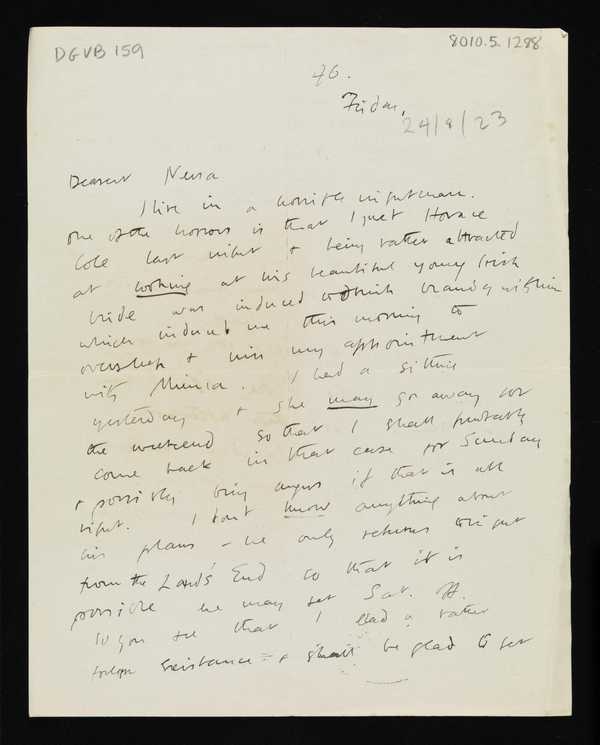 DGVB 159
8010.5.1288
46.
Friday,
24/8/23
Dearest Nessa
I live in a horrible nightmare.
one of the horrors is that I met Horace
Cole last night & being rather attracted
at looking at his beautiful young Irish
bride was induced to drink brandy with him
which induced me this morning to
oversleep & miss my appointment
with Minna. I had a sitting
yesterday & she may go away for
the weekend so that I shall probably
come back in that case for Sunday
& possibly bring Angus if that is all
right. I don't know anything about
his plans – he only returns tonight
from the Land's End so that it is
possible he may set Sat. aft.
So you see that I lead a rather
existence – & shall be glad to get